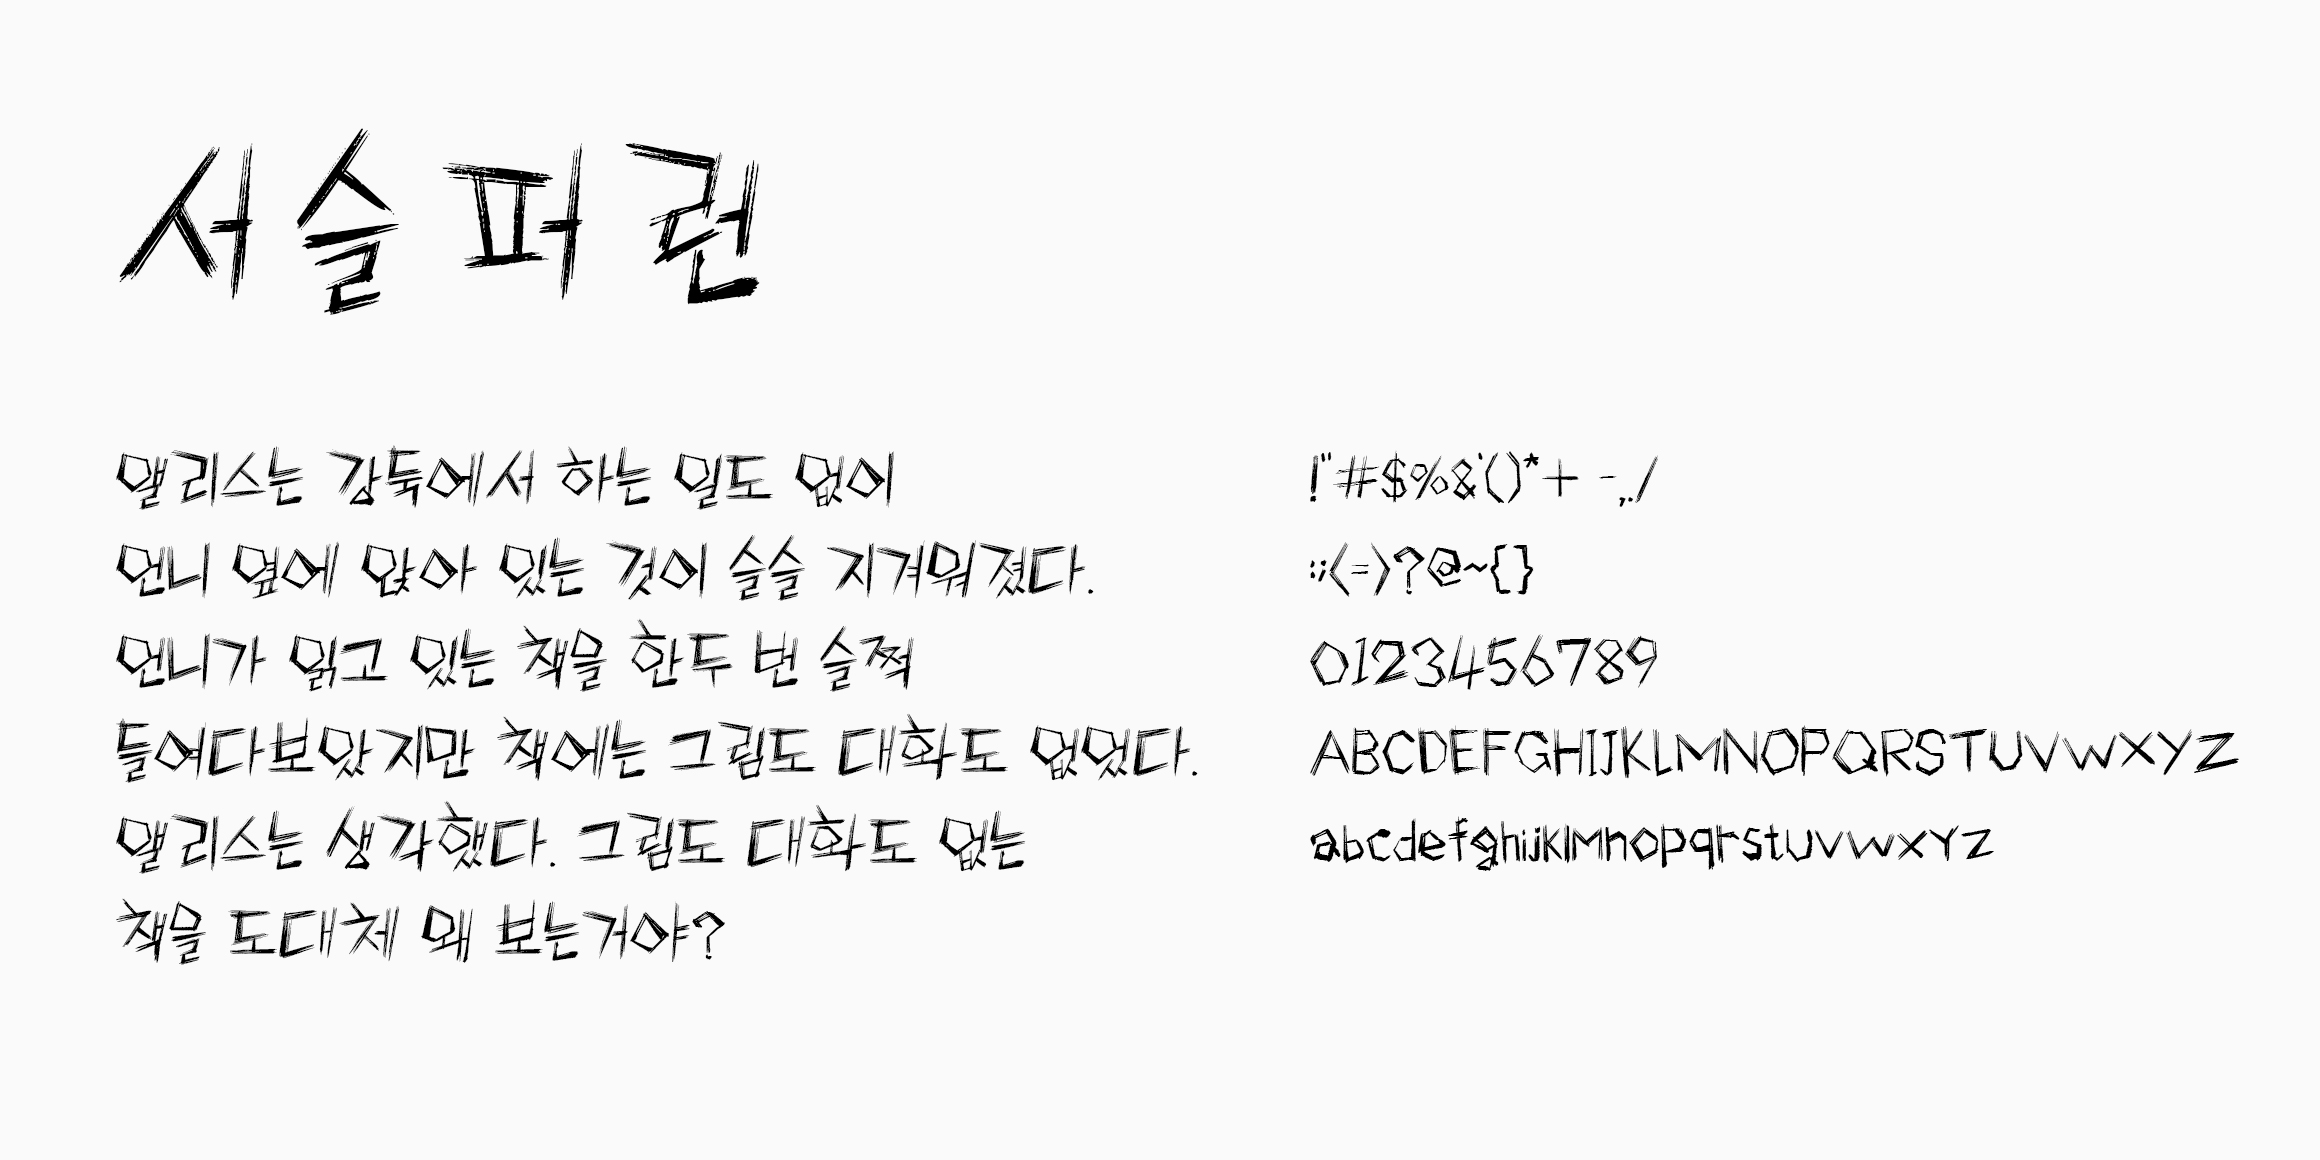 서슬퍼런
앨리스는 강둑에서 하는 일도 없이
언니 옆에 앉아 있는 것이 슬슬 지겨워졌다.
언니가 읽고 있는 책을 한두 번 슬쩍
들여다보았지만 책에는 그림도 대화도 없었다.
앨리스는 생각했다. 그림도 대화도 없는
책을 도대체 왜 보는거야?
!"#$%&'()*+ -,./
:;<=>?@~{}
0123456789
ABCDEFGHIJKLMNOPQRSTUVWXYZ
abcdefghijklmnopqrstuvwxyz